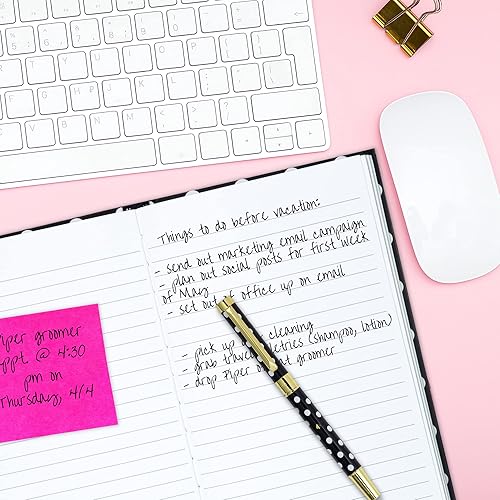 Things to do before vacation:
- send out marketing email campaign
- plan out social posts for first week
of May
- set out of office up on email
- pick up cleaning
- grab travel (shampoo, lotion)
- drop Piper at groomer
Piper groomer
appt @ 4:30
pm on
Thursday, 4/4